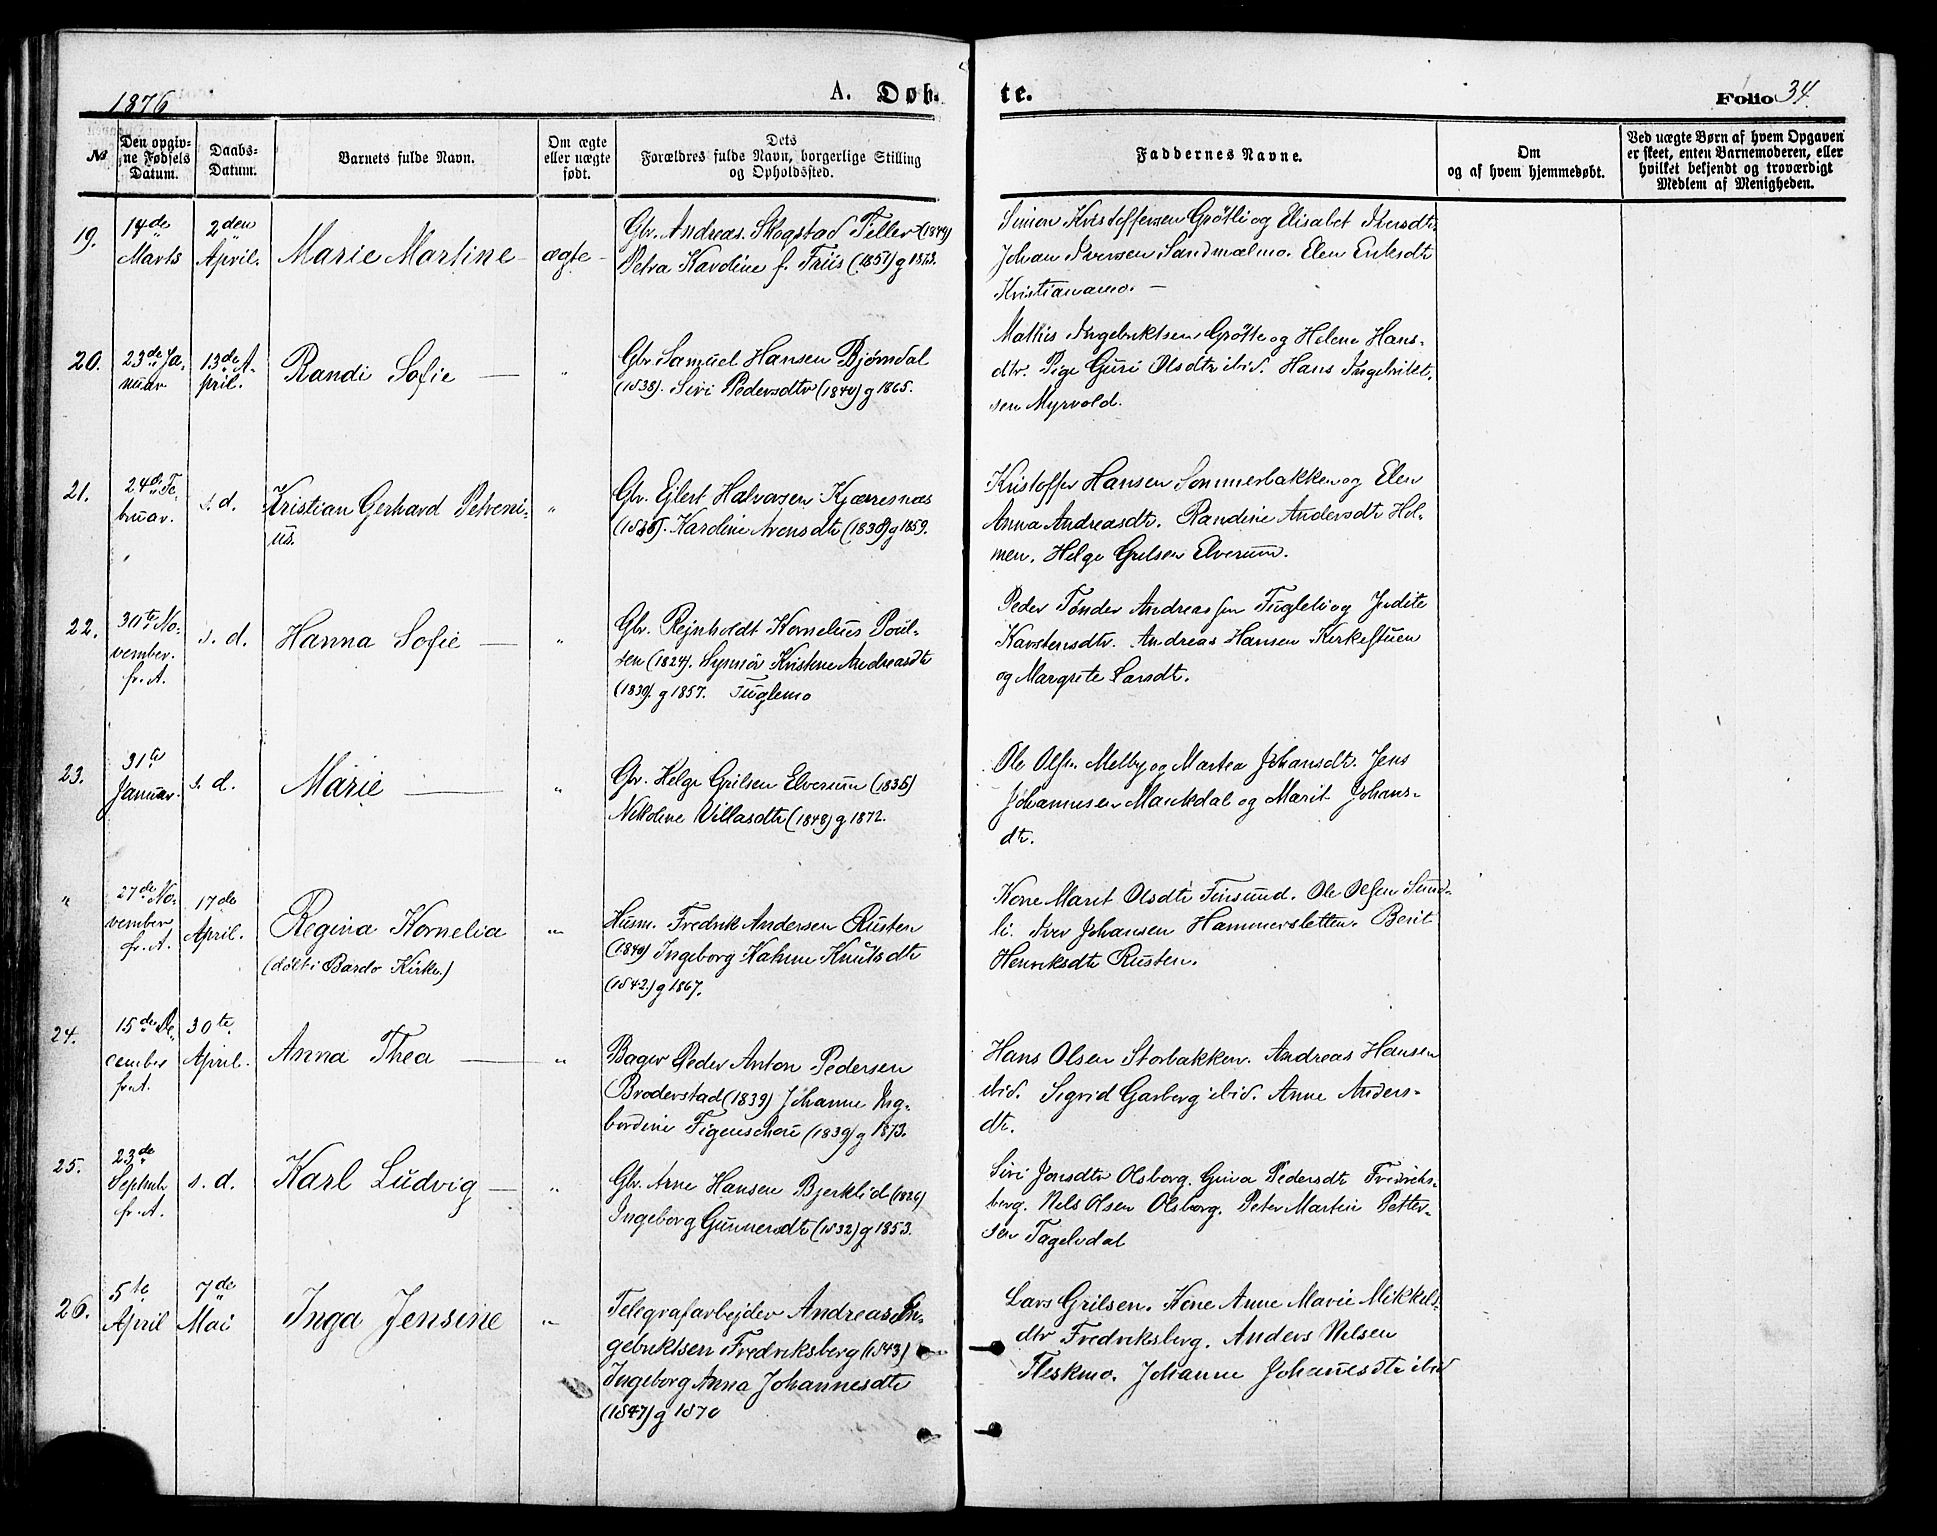 1876
A. Døb-
te.
Folio 34.
№
Den opgiv-
ne Fødsels
Datum.
Daabs-
Datum.
Barnets fulde Navn.
Om ægte
eller uægte
født.
Dets
Forældres fulde Navn, borgerlige Stilling
og Opholdssted.
Faddernes Navne.
Om
og af hvem hjemmedøbt.
Ved uægte Børn af hvem Opgaven
er skeet, enten Barnemoderen, eller
hvilket bekjendt og troværdigt
Medlem af Menigheden.
19.
14de
Marts
2den
April.
Marie Martine
ægte
Gbr. Andreas Skogstad Feller (1849)
Petra Kardine f. Friis (1851) g 1873.
Simon Kristoffersen Grøtli og Elisabet Iversdtr.
Johan Iversen Sandmælmo. Elen Eriksdtr
Kristianamo. —
20.
23de Ja-
nuar
13de A-
pril.
Randi Sofie —
"
Gbr. Samuel Hansen Bjørndal
(1838). Siri Pedersdtr (1840) g 1865.
Mathis Ingebriktsen Grøtte og Helene Hans-
dtr. Pige Guri Olsdtr ibid. Hans Ingebrikt-
sen Myrvold.
21.
24de Fe-
bruar.
s. d.
Kristian Gerhard Petreni-
us.
"
Gbr. Ejlert Halvorsen Kjærresnæs
Kardine Arensdtr (1838) g 1859.
Kristoffer Hansen Sommerbakken og Elen
Anna Andreasdtr. Randine Andersdtr Hol-
men. Helge Grilsen Elverum.
22.
30te No-
vember.
fr. A.
s. d.
Hanna Sofie —
"
Gbr. Rejnholdt Kornelius Poul-
sen (1824). Synnør Kristine Andreasdtr
(1839). g 1857. Fuglemo
Peder Tønder Andreassen Fugleli og Judite
Karstensdtr. Andreas Hansen Kirkestuen
og Margrete Larsdtr.
23.
31te
Januar.
s. d.
Marie —
"
Gbr. Helge Grilsen Elverum (1835)
Nikoline Villasdtr (1848) g 1872.
Ole Olsen Melby og Martea Johansdtr. Jens
Johannesen Maukdal og Marit Johans-
dtr.
"
27de No-
vember
fr. A.
17de
April.
Regina Kornelia
(døbt i Bardo Kirke.)
"
Husm. Fredrik Andersen Rusten
(1840) Ingeborg Katrine Knutsdtr
(1842) g 1867.
Kone Marit Olsdtr Finsund. Ole Olsen Sund-
li. Iver Johansen Hammersletten. Berit
Henriksdtr Rusten.
24.
15de De-
cember
fr. A.
30te
April.
Anna Thea —
"
Bager Peder Anton Pedersen
Broderstad (1839) Johanne Ing-
bordine Figenschou (1839) g 1873.
Hans Olsen Storbakken. Andreas Hansen
ibid. Sigrid Garberg ibid. Anne Anders-
dtr.
25.
23de
Septbr.
fr. A.
s. d.
Karl Ludvig —
"
Gbr. Arne Hansen Bjerklid (1826)
Ingeborg Gunnersdtr (1832) g 1853.
Siri Jonsdtr Olsborg. Guva Pedersdtr Fredriks-
berg. Nils Olsen Olsborg. Peter Martin Petter-
sen Fagelidal
26.
5te
April
7de
Mai
Inga Jensine
"
Telegrafarbejder Andreas In-
gebriktsen Fredriksberg (1843)
Ingeborg Anna Johannesdtr
(1847) g 1870
Lars Grilsen. Kone Anne Marie Mikkels-
dtr Fredriksberg. Anders Nilsen
Fleskmo. Johanne Johannesdtr ibid